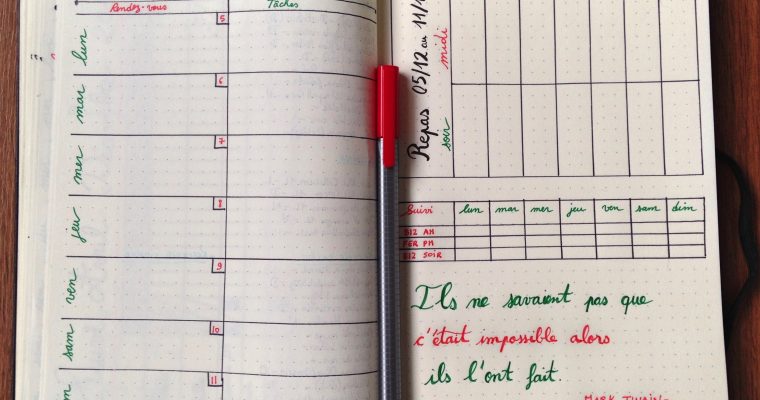 Rendez-vous Tâches
lun 5
mar 6
mer 7
jeu 8
ven 9
sam 10
11
Repas 05/12 au 11/1
midi
soir
Suivi lun mar mer jeu ven sam dim
BIZ AM
PER PM
BIZ SOIR
Ils ne savaient pas que
c'était impossible alors
ils l'ont fait.
MARK TWAIN-